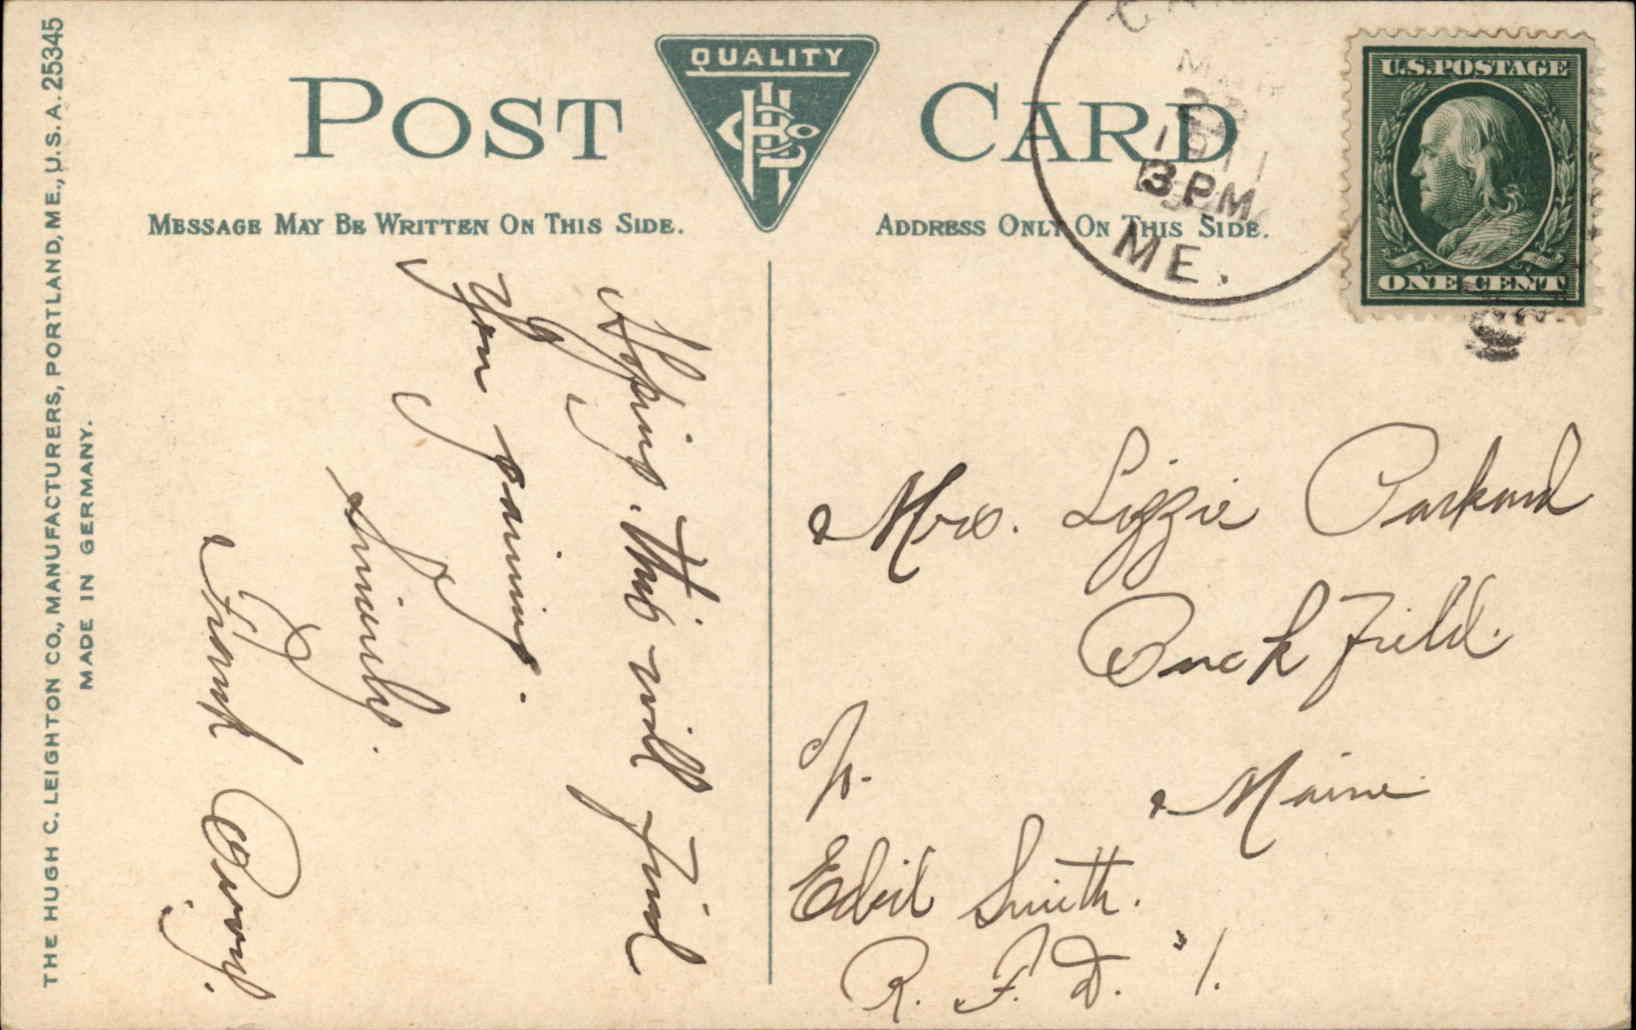 THE HUGH C. LEIGHTON CO., MANUFACTURERS, PORTLAND, ME., U.S.A. 25345
MADE IN GERMANY.
POST CARD
QUALITY
MESSAGE MAY BE WRITTEN ON THIS SIDE.
ADDRESS ONLY ON THIS SIDE.
MAR
1911
3 PM
ME.
U.S. POSTAGE
ONE CENT
Hoping this will find
you gaining.
Sincerely.
Frank
Mrs. Lizzie Packard
Buckfield.
Maine
Smith.
R. F. D. "1.